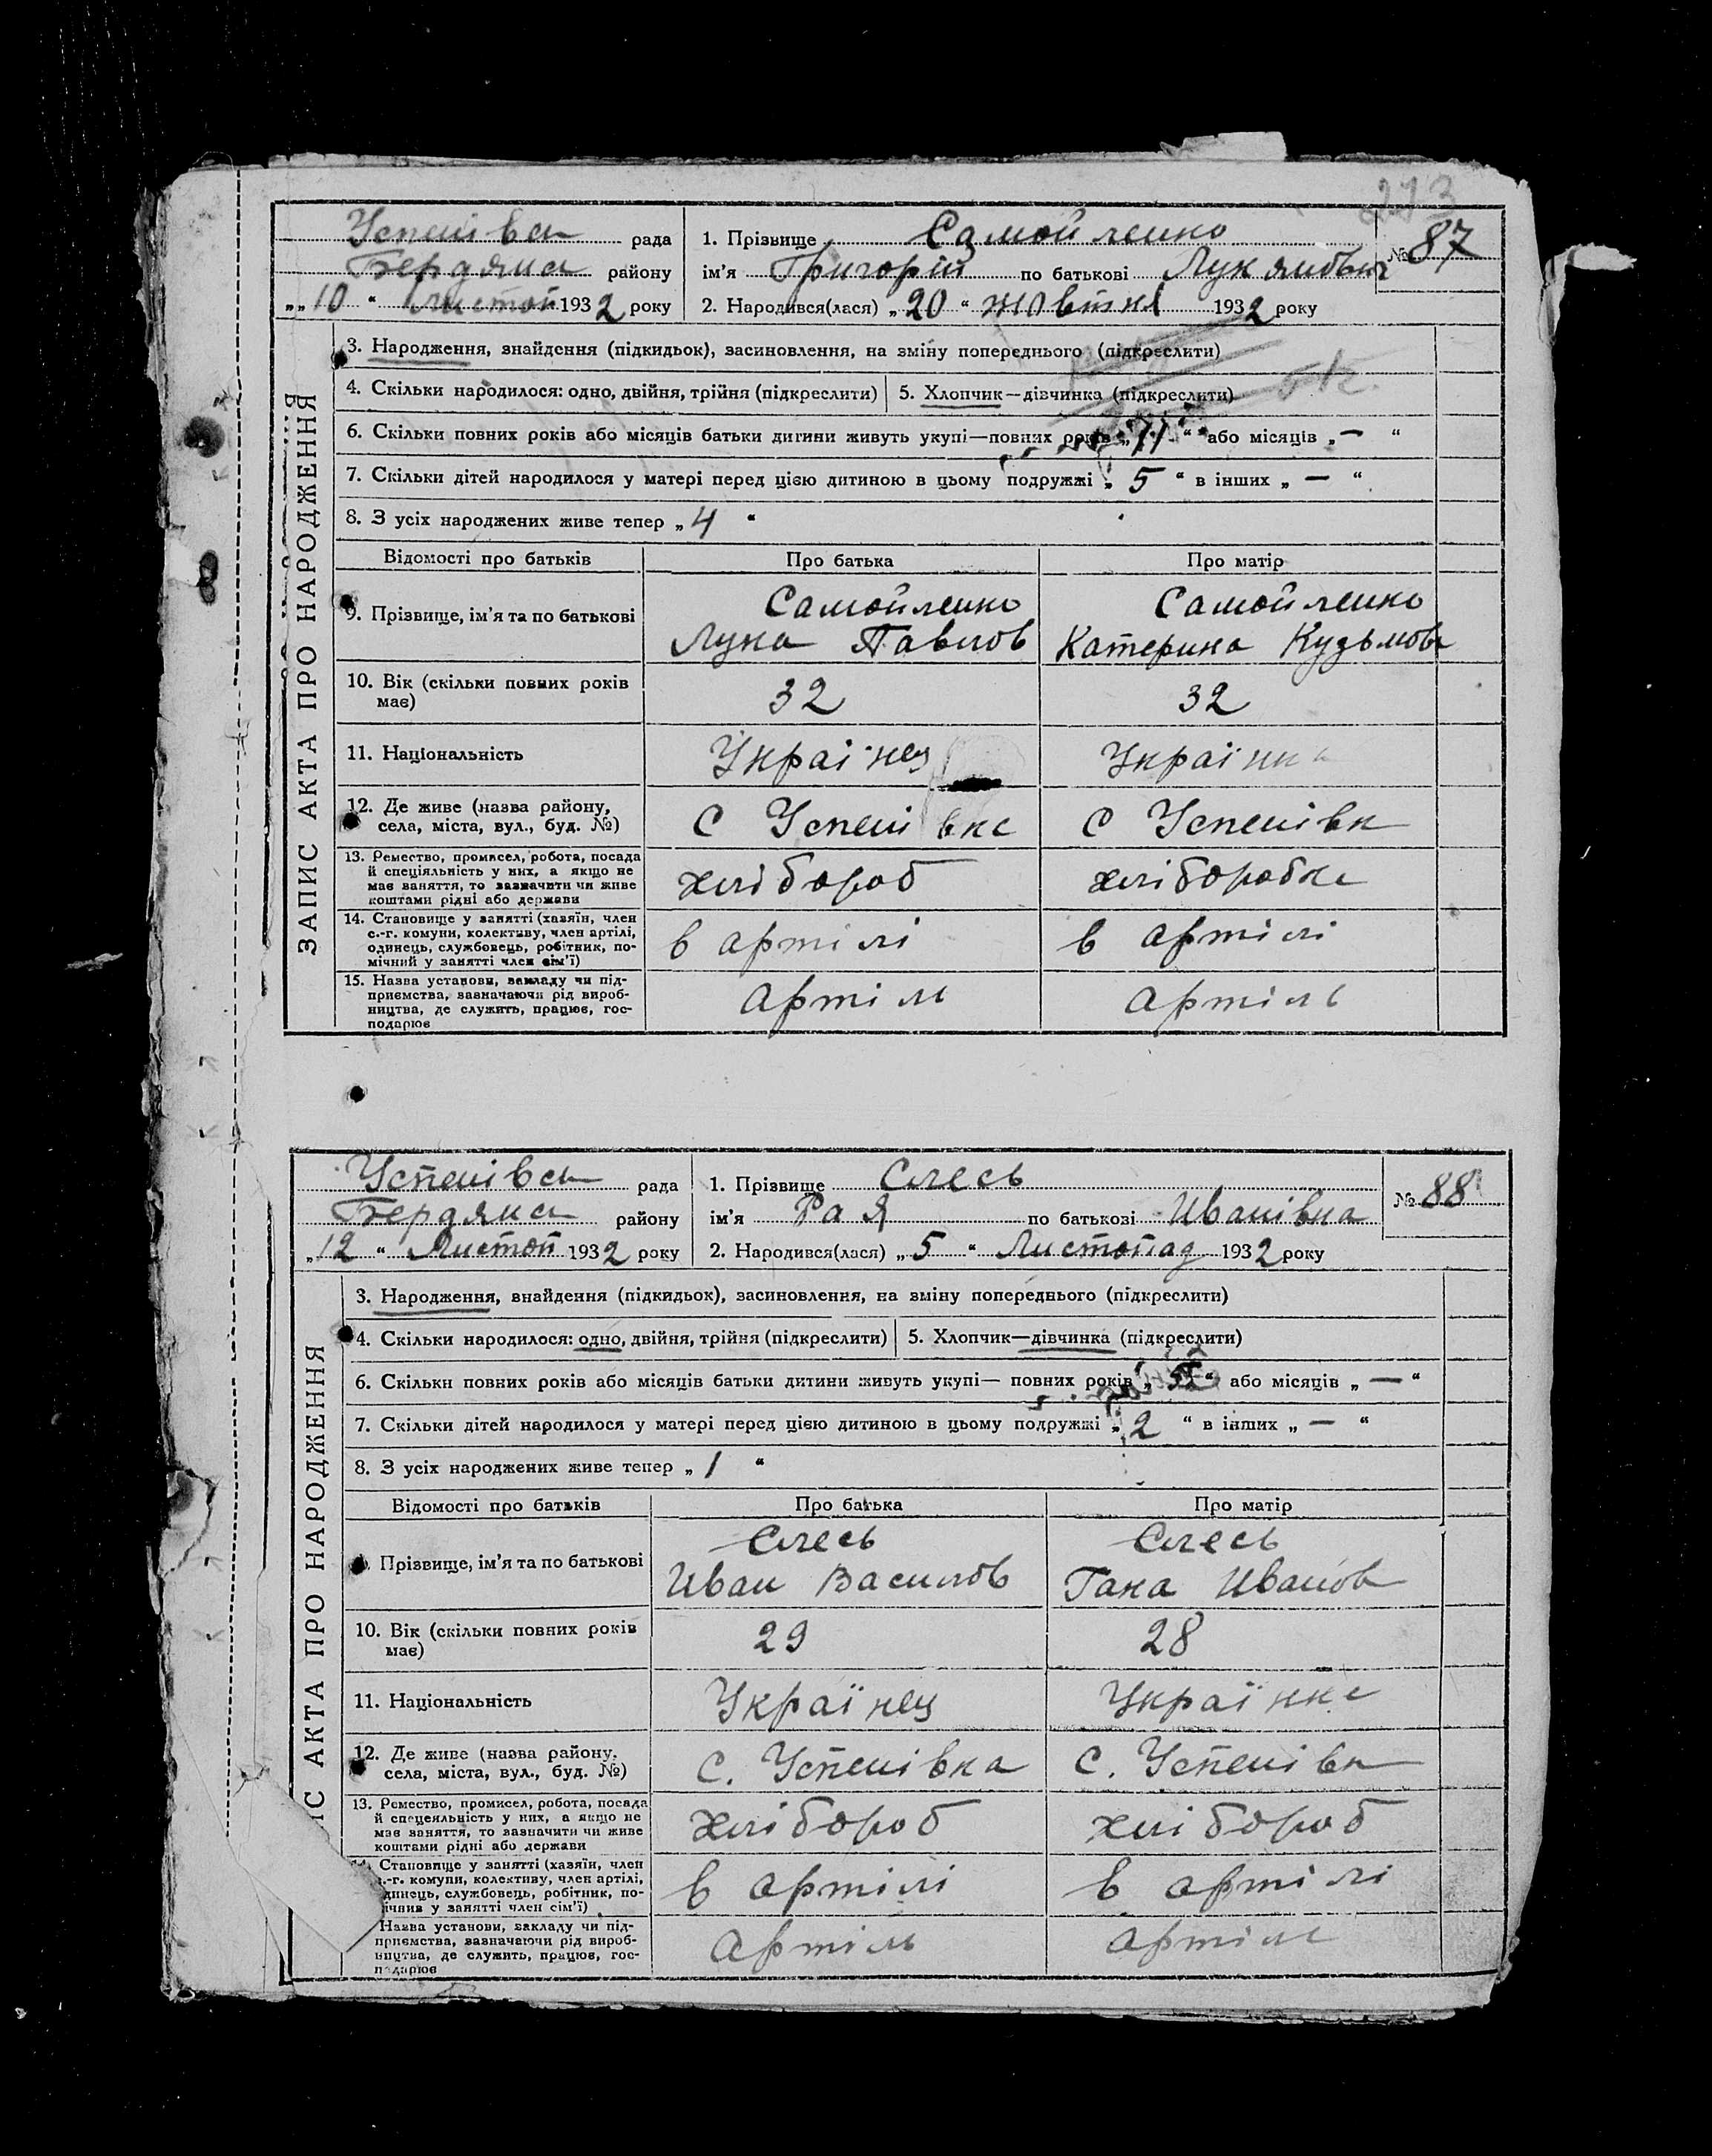 273
Успенівськ рада 1. Прізвище Самойленко № 87
Бердянськ району ім'я Григорій по батькові Лукянович
„10“ Листоп 1932 року 2. Народився(лася) „20“ жовтня 1932 року
ЗАПИС АКТА ПРО НАРОДЖЕННЯ
3. Народження, знайдення (підкидьок), засиновлення, на зміну попереднього (підкреслити)
4. Скільки народилося: одно, двійня, трійня (підкреслити) 5. Хлопчик—дівчинка (підкреслити)
6. Скільки повних років або місяців батьки дитини живуть укупі—повних років „11“ або місяців „—“
7. Скільки дітей народилося у матері перед цією дитиною в цьому подружжі „5“ в інших „—“
8. З усіх народжених живе тепер „4“
Відомості про батьків Про батька Про матір
9. Прізвище, ім'я та по батькові Самойленко Самойленко
Лука Павлов Катерина Кузьмовн
10. Вік (скільки повних років 32 32
має)
11. Національність Українец Українка
12. Де живе (назва району, с Успенівка с Успенівк
села, міста, вул., буд. №)
13. Ремество, промисел, робота, посада хлібороб хлібороbка
й спеціяльність у них, а якщо не
має заняття, то зазначити чи живе
коштами рідні або держави
14. Становище у занятті (хазяїн, член в артілі в артілі
с.-г. комуни, колективу, член артілі,
одинець, службовець, робітник, по-
мічний у занятті член сім'ї)
15. Назва установи, закладу чи під- артіль артіль
приємства, зазначаючи рід вироб-
ництва, де служить, працює, гос-
подарює
Успенівськ рада 1. Прізвище Слесь № 88
Бердянськ району ім'я Рая по батькові Иванівна
„12“ Листоп 1932 року 2. Народився(лася) „5“ Листопад 1932 року
АКТА ПРО НАРОДЖЕННЯ
3. Народження, знайдення (підкидьок), засиновлення, на зміну попереднього (підкреслити)
4. Скільки народилося: одно, двійня, трійня (підкреслити) 5. Хлопчик—дівчинка (підкреслити)
6. Скільки повних років або місяців батьки дитини живуть укупі— повних років або місяців „—“
7. Скільки дітей народилося у матері перед цією дитиною в цьому подружжі „2“ в інших „—“
8. З усіх народжених живе тепер „1“
Відомості про батьків Про батька Про матір
Прізвище, ім'я та по батькові Слесь Слесь
Иван Васильов Гана Иванов
10. Вік (скільки повних років 29 28
має)
11. Національність Українец Українка
12. Де живе (назва району, с. Успенівка с. Успенівк
села, міста, вул., буд. №)
13. Ремество, промисел, робота, посада хлібороб хлібороб
й спецеяльність у них, а якщо не
має заняття, то зазначити чи живе
коштами рідні або держави
Становище у занятті (хазяїн, член в артілі в артілі
с.-г. комуни, колективу, член артілі,
одинець, службовець, робітник, по-
мічний у занятті член сім'ї)
Назва установи, закладу чи під- артіль артіль
приємства, зазначаючи рід вироб-
ництва, де служить, працює, гос-
подарює